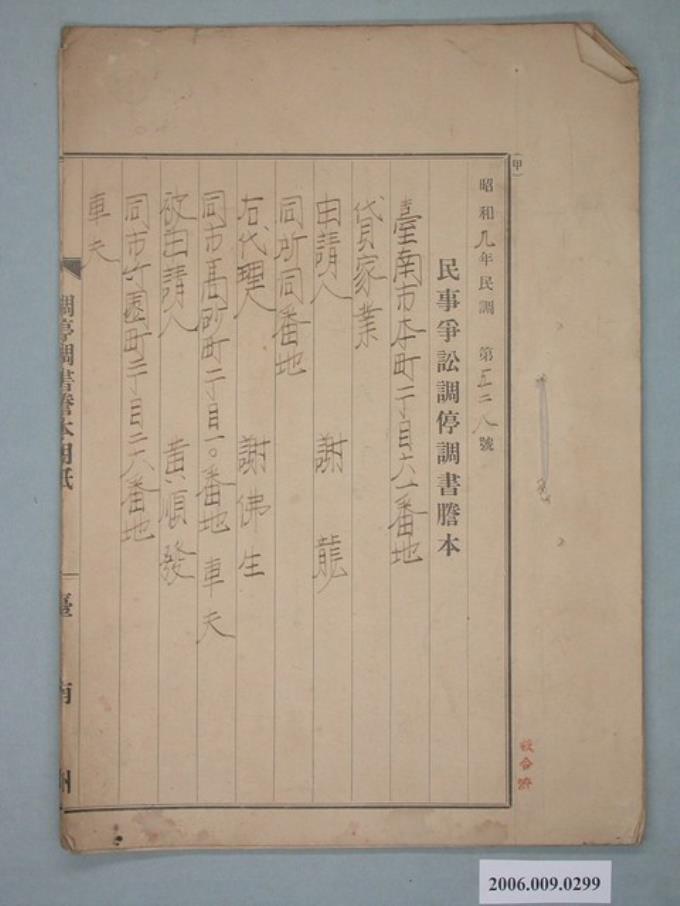 (甲)
昭和九年民調 第五二八號
民事爭訟調停調書謄本
臺南市本町二丁目六一番地
貸家業
申請人 謝龍
同所同番地
右代理人 謝佛生
同市高砂町二丁目一〇番地 車夫
被申請人 黃順發
同市竹園町二丁目二六番地
車夫
調停調書謄本用紙
臺南州
校合濟
2006.009.0299